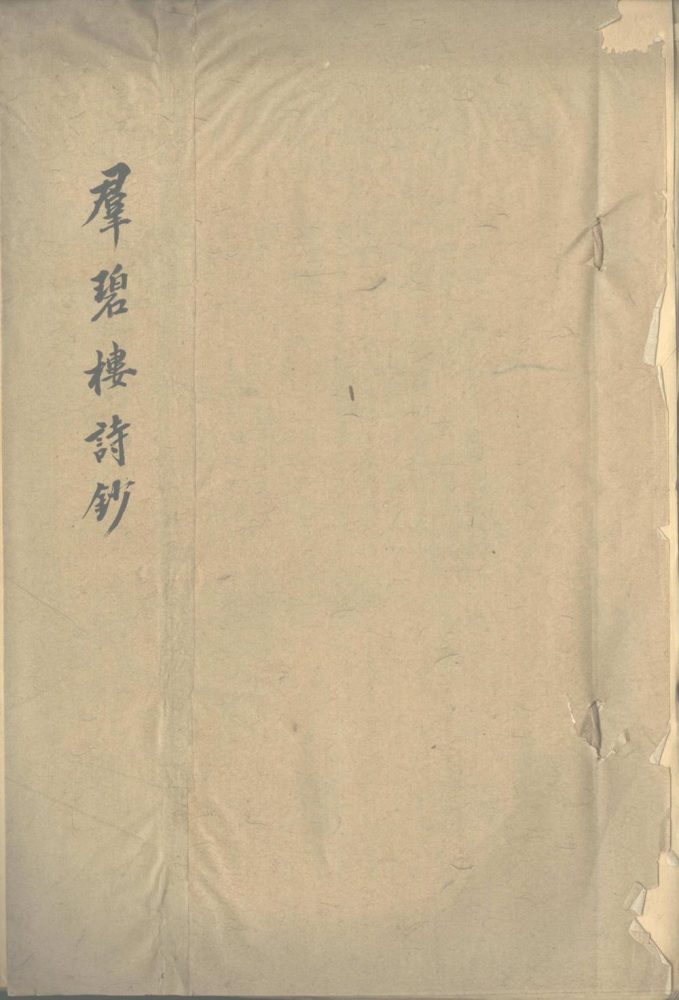 羣碧樓詩鈔